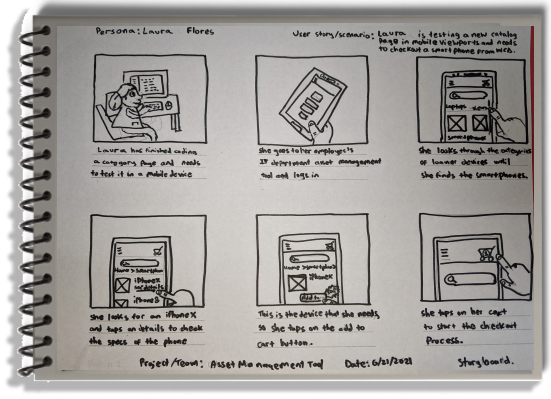 Persona: Laura Flores
User story/scenario: Laura is testing a new catalog
page in mobile viewports and needs
to checkout a smartphone from work.
Laura has finished coding
a category page and needs
to test it in a mobile device
She goes to her employer's
IT department asset management
tool and logs in
Laptops
smartphones
She looks through the categories
of loaner devices until
she finds the smartphones.
Home > Smartphon
iPhone X
iPhone 8
She looks for an iPhone X
and taps on details to check
the specs of the phone
Home > Smartphon
iPhone X
Add to
This is the device that she needs,
so she taps on the add to
cart button.
She taps on her cart
to start the checkout
Process.
Project/Team: Asset Management Tool
Date: 6/21/2021
Storyboard.